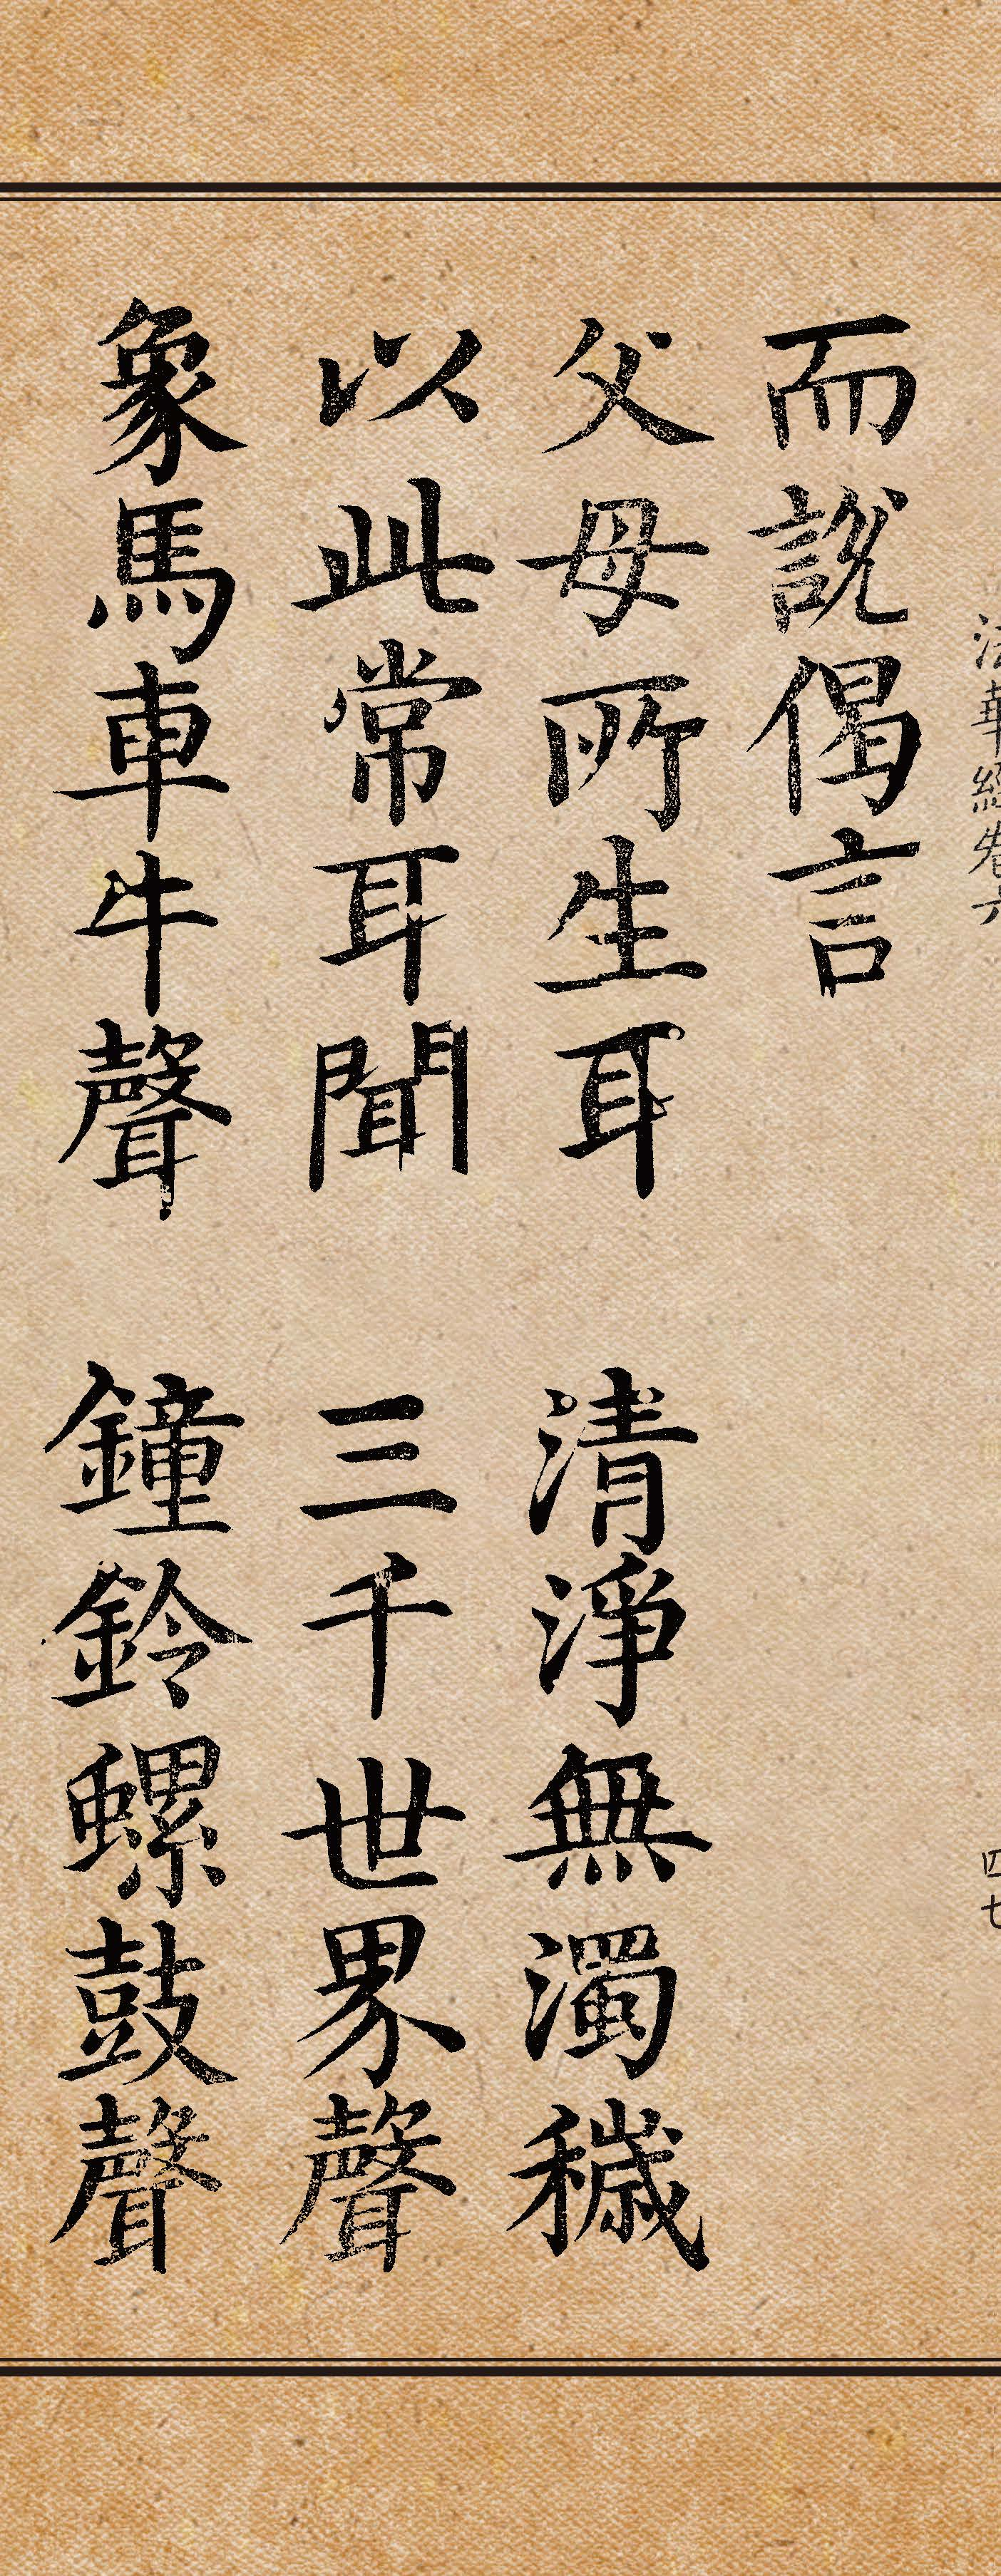 法華經卷六
四七
而說偈言
父母所生耳 清淨無濁穢
以此常耳聞 三千世界聲
象馬車牛聲 鐘鈴螺鼓聲